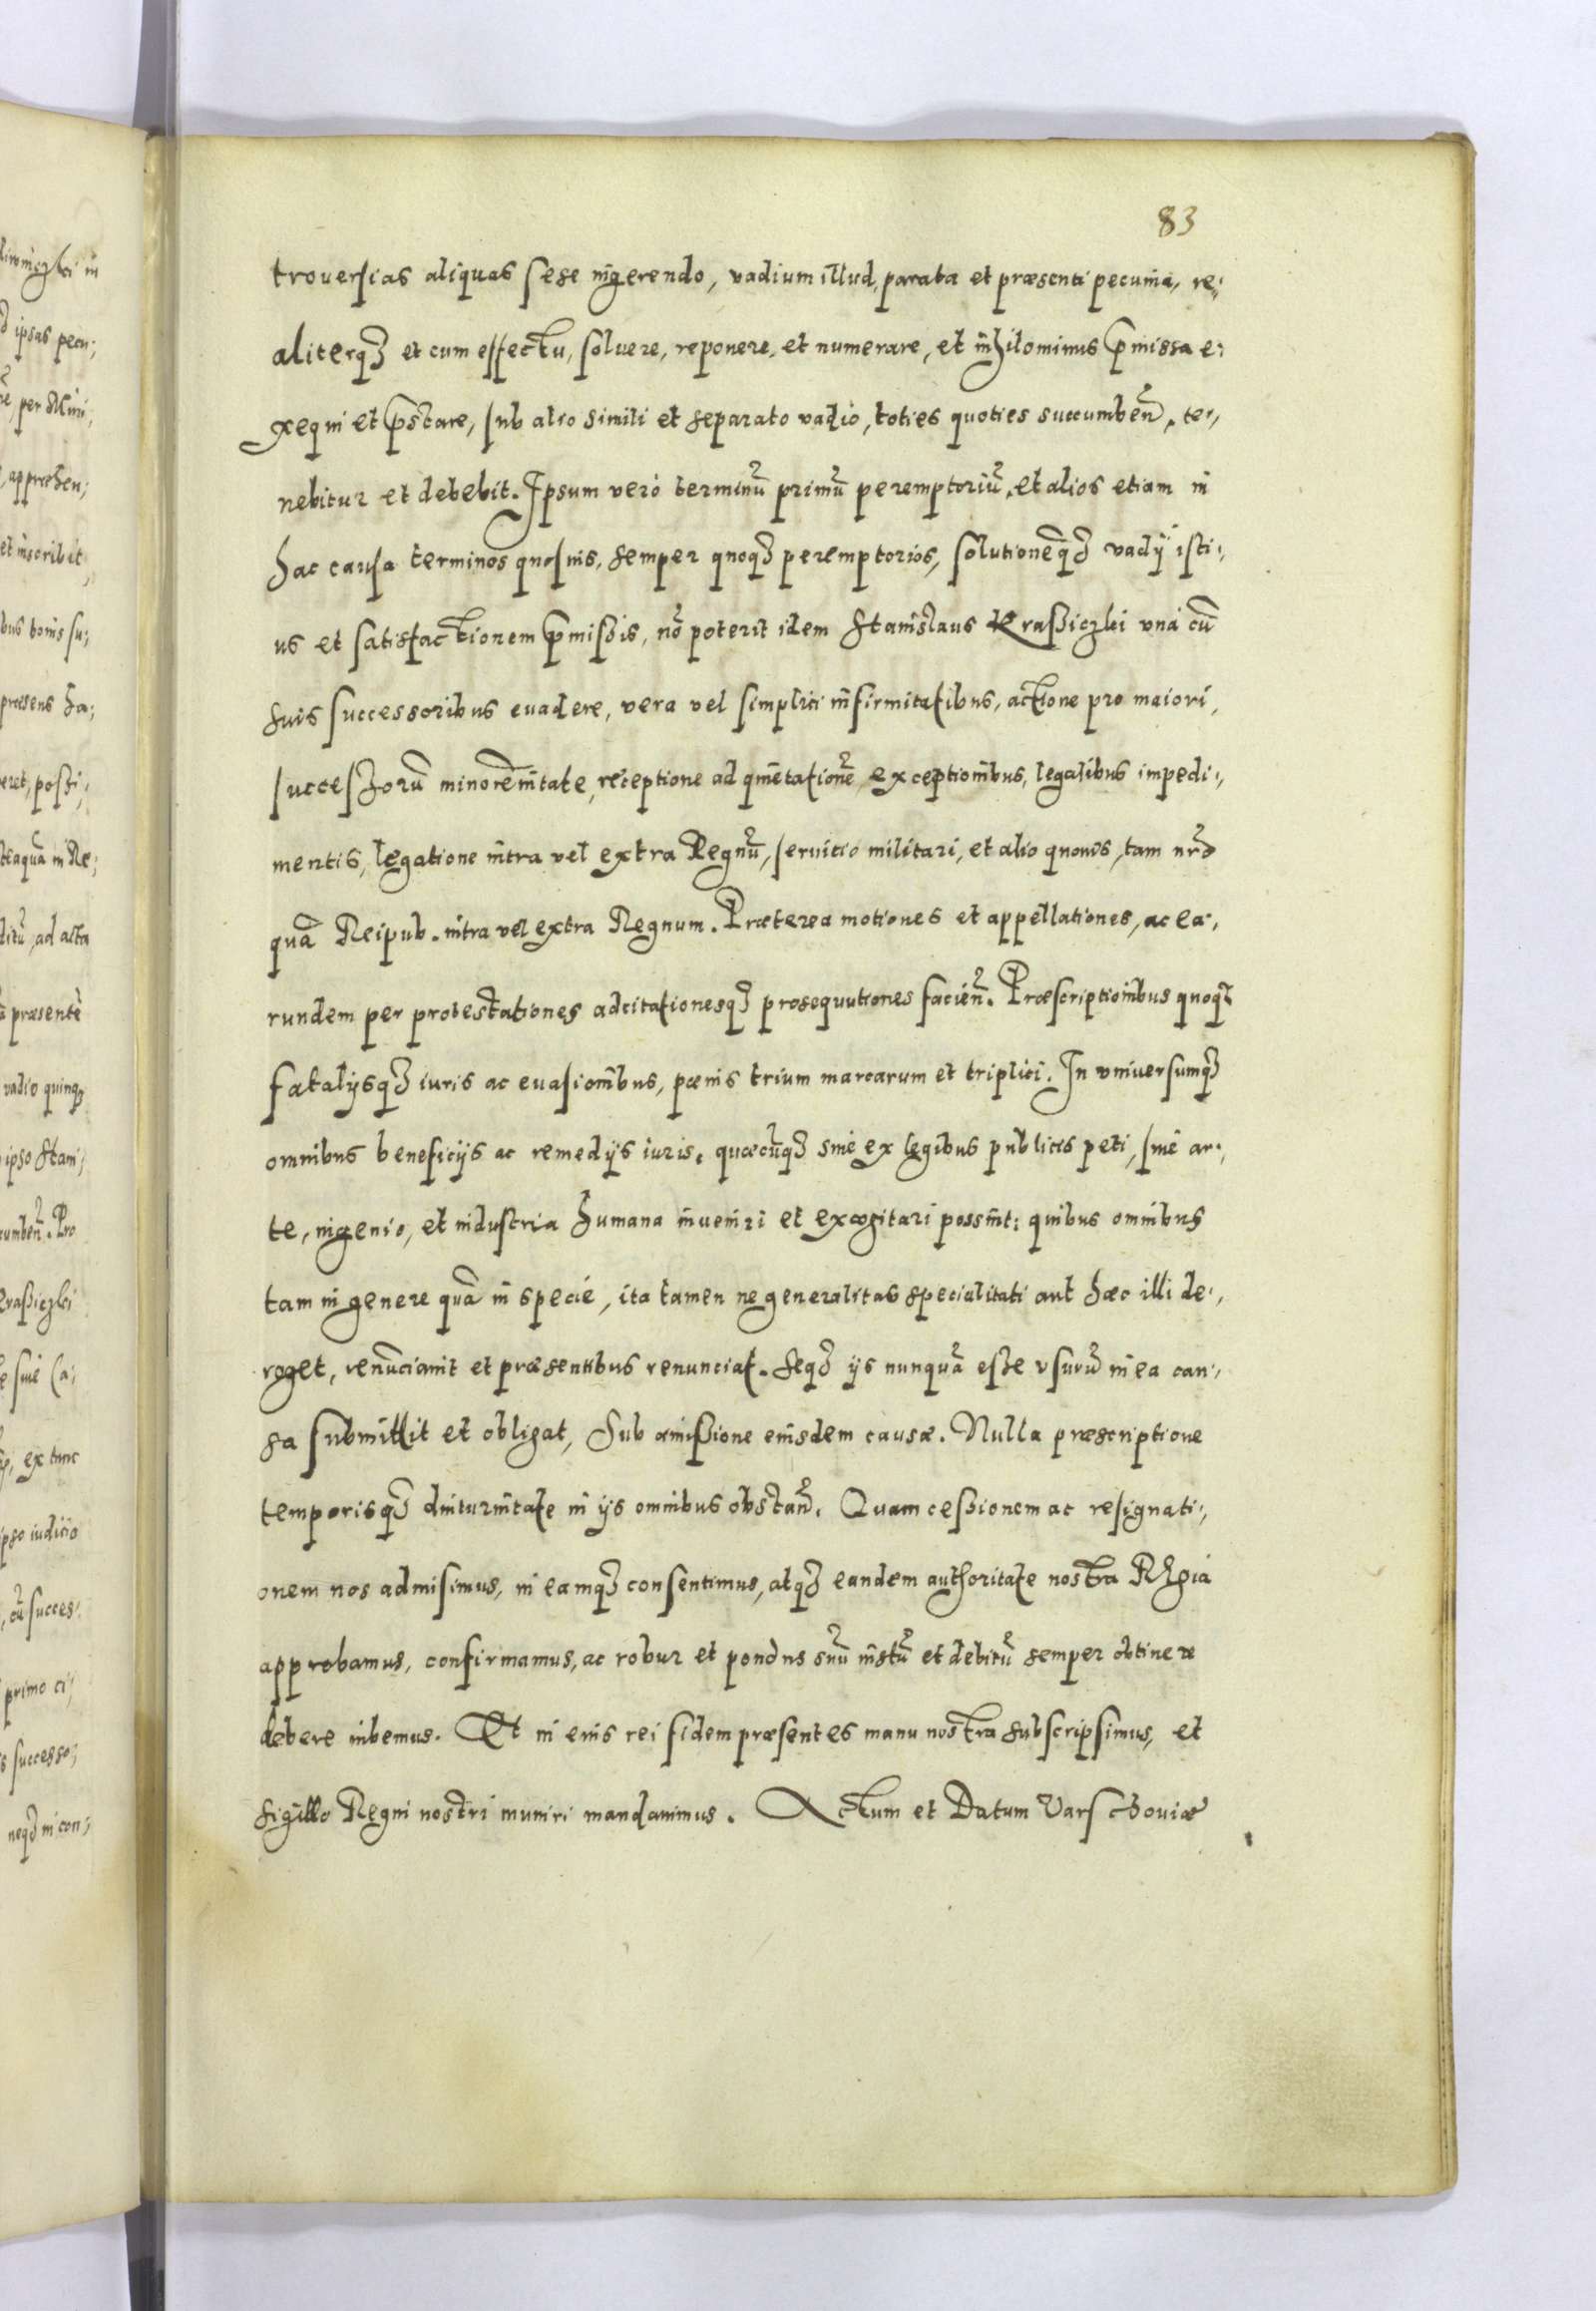 83
troversias aliquas sese ingerendo, vadium illud, parata et præsenti pecunia, re,
aliterqȝ et cum effectu, soluere, reponere, et numerare, et nihilominus p̄missa e,
xequi et p̄stare, sub alio simili et separato vadio, toties quoties succumbeñ. te,
nebitur et debebit. Ipsum vero terminū primū peremptoriū, et alios etiam in
hac causa terminos quosuis, semper quoqȝ peremptorios, solutionēqȝ vadÿ isti,
us et satisfactionem p̄mißis, nō poterit idem Stanislaus Kraßiczki vna cū
suis successoribus euadere, vera vel simplici infirmitatibus, actione pro maiori,
successorū minorēnitate, receptione ad qmētationē exceptionibus, legalibus impedi,
mentis, legatione intra vel extra Regnū, seruitio militari, et alio quouis, tam nr̄o
quā Reipub. intra vel extra Regnum. Præterea motiones et appellationes, ac ea,
rundem per protestationes adcitationesqȝ prosequutiones facieñ. Præscriptionibus quoqȝ
fatalÿsqȝ iuris ac euasionibus, pœnis trium marcarum et triplici. In vniuersumqȝ
omnibus beneficÿs ac remedÿs iuris, quæcūqȝ siue ex legibus publicis peti, siue ar,
te, ingenio, et industria humana inueniri et excogitari possint: quibus omnibus
tam in genere quā in specie, ita tamen ne generalitas specialitati aut hæc illi de,
roget, renūciauit et præsentibus renunciat. Seqȝ ÿs nunquā esse vsurū in ea cau,
sa submittit et obligat, sub amißione eiusdem causæ. Nulla præscriptione
temporisqȝ diuturnitate in ÿs omnibus obstañ. Quam ceßionem ac resignati,
onem nos admisimus, in eamqȝ consentimus, atqȝ eandem authoritate nostra Regia
approbamus, confirmamus, ac robur et pondus suū iustū et debitū semper obtinere
debere iubemus. Et in eius rei fidem præsentes manu nostra subscripsimus, et
sigillo Regni nostri muniri mandauimus. Actum et Datum Varschouiæ